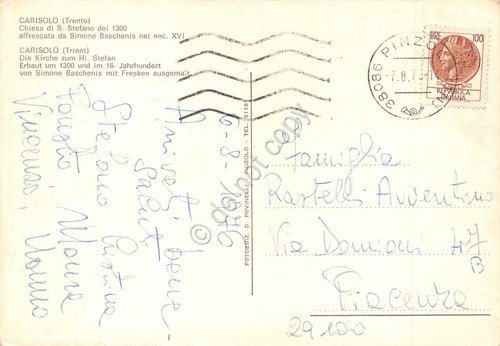 CARISOLO (Trento)
Chiesa di S. Stefano del 1300
affrescata da Simone Baschenis nel sec. XVI
CARISOLO (Trient)
Die Kirche zum Hl. Stefan
Erbaut um 1300 und im 16. Jahrhundert
von Simone Baschenis mit Fresken ausgemalt
6-8-1976
Arrivati bene -
Saluti
Stefano Cristina
Maura
Vincenzo, Nonna
FOTOEDIZ. D. POVINELLI - PINZOLO - TEL.
do not copy
38086 PINZOLO
LIRE 100
REPUBBLICA
ITALIANA
Famiglia
Rastelli Avventino
Via Damiani 47
B
Piacenza
29100